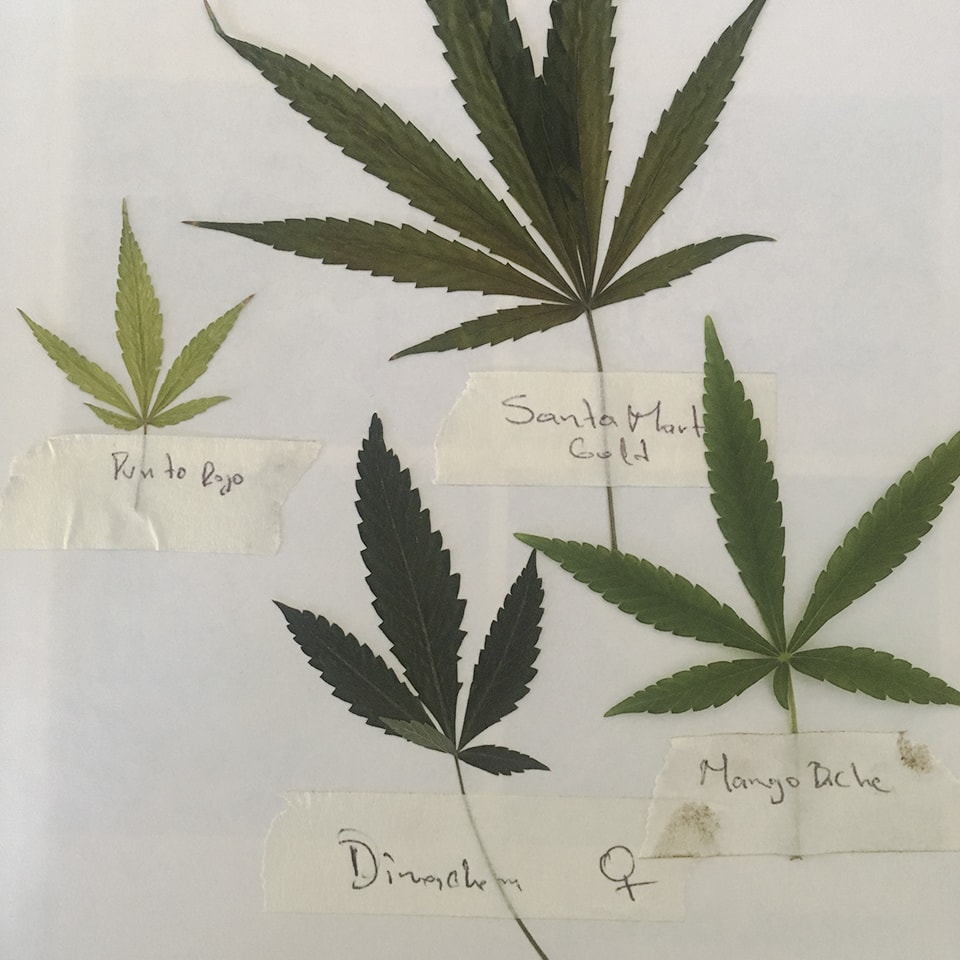 Santa Mart
Gold
Punto Rojo
Mango Biche
♀